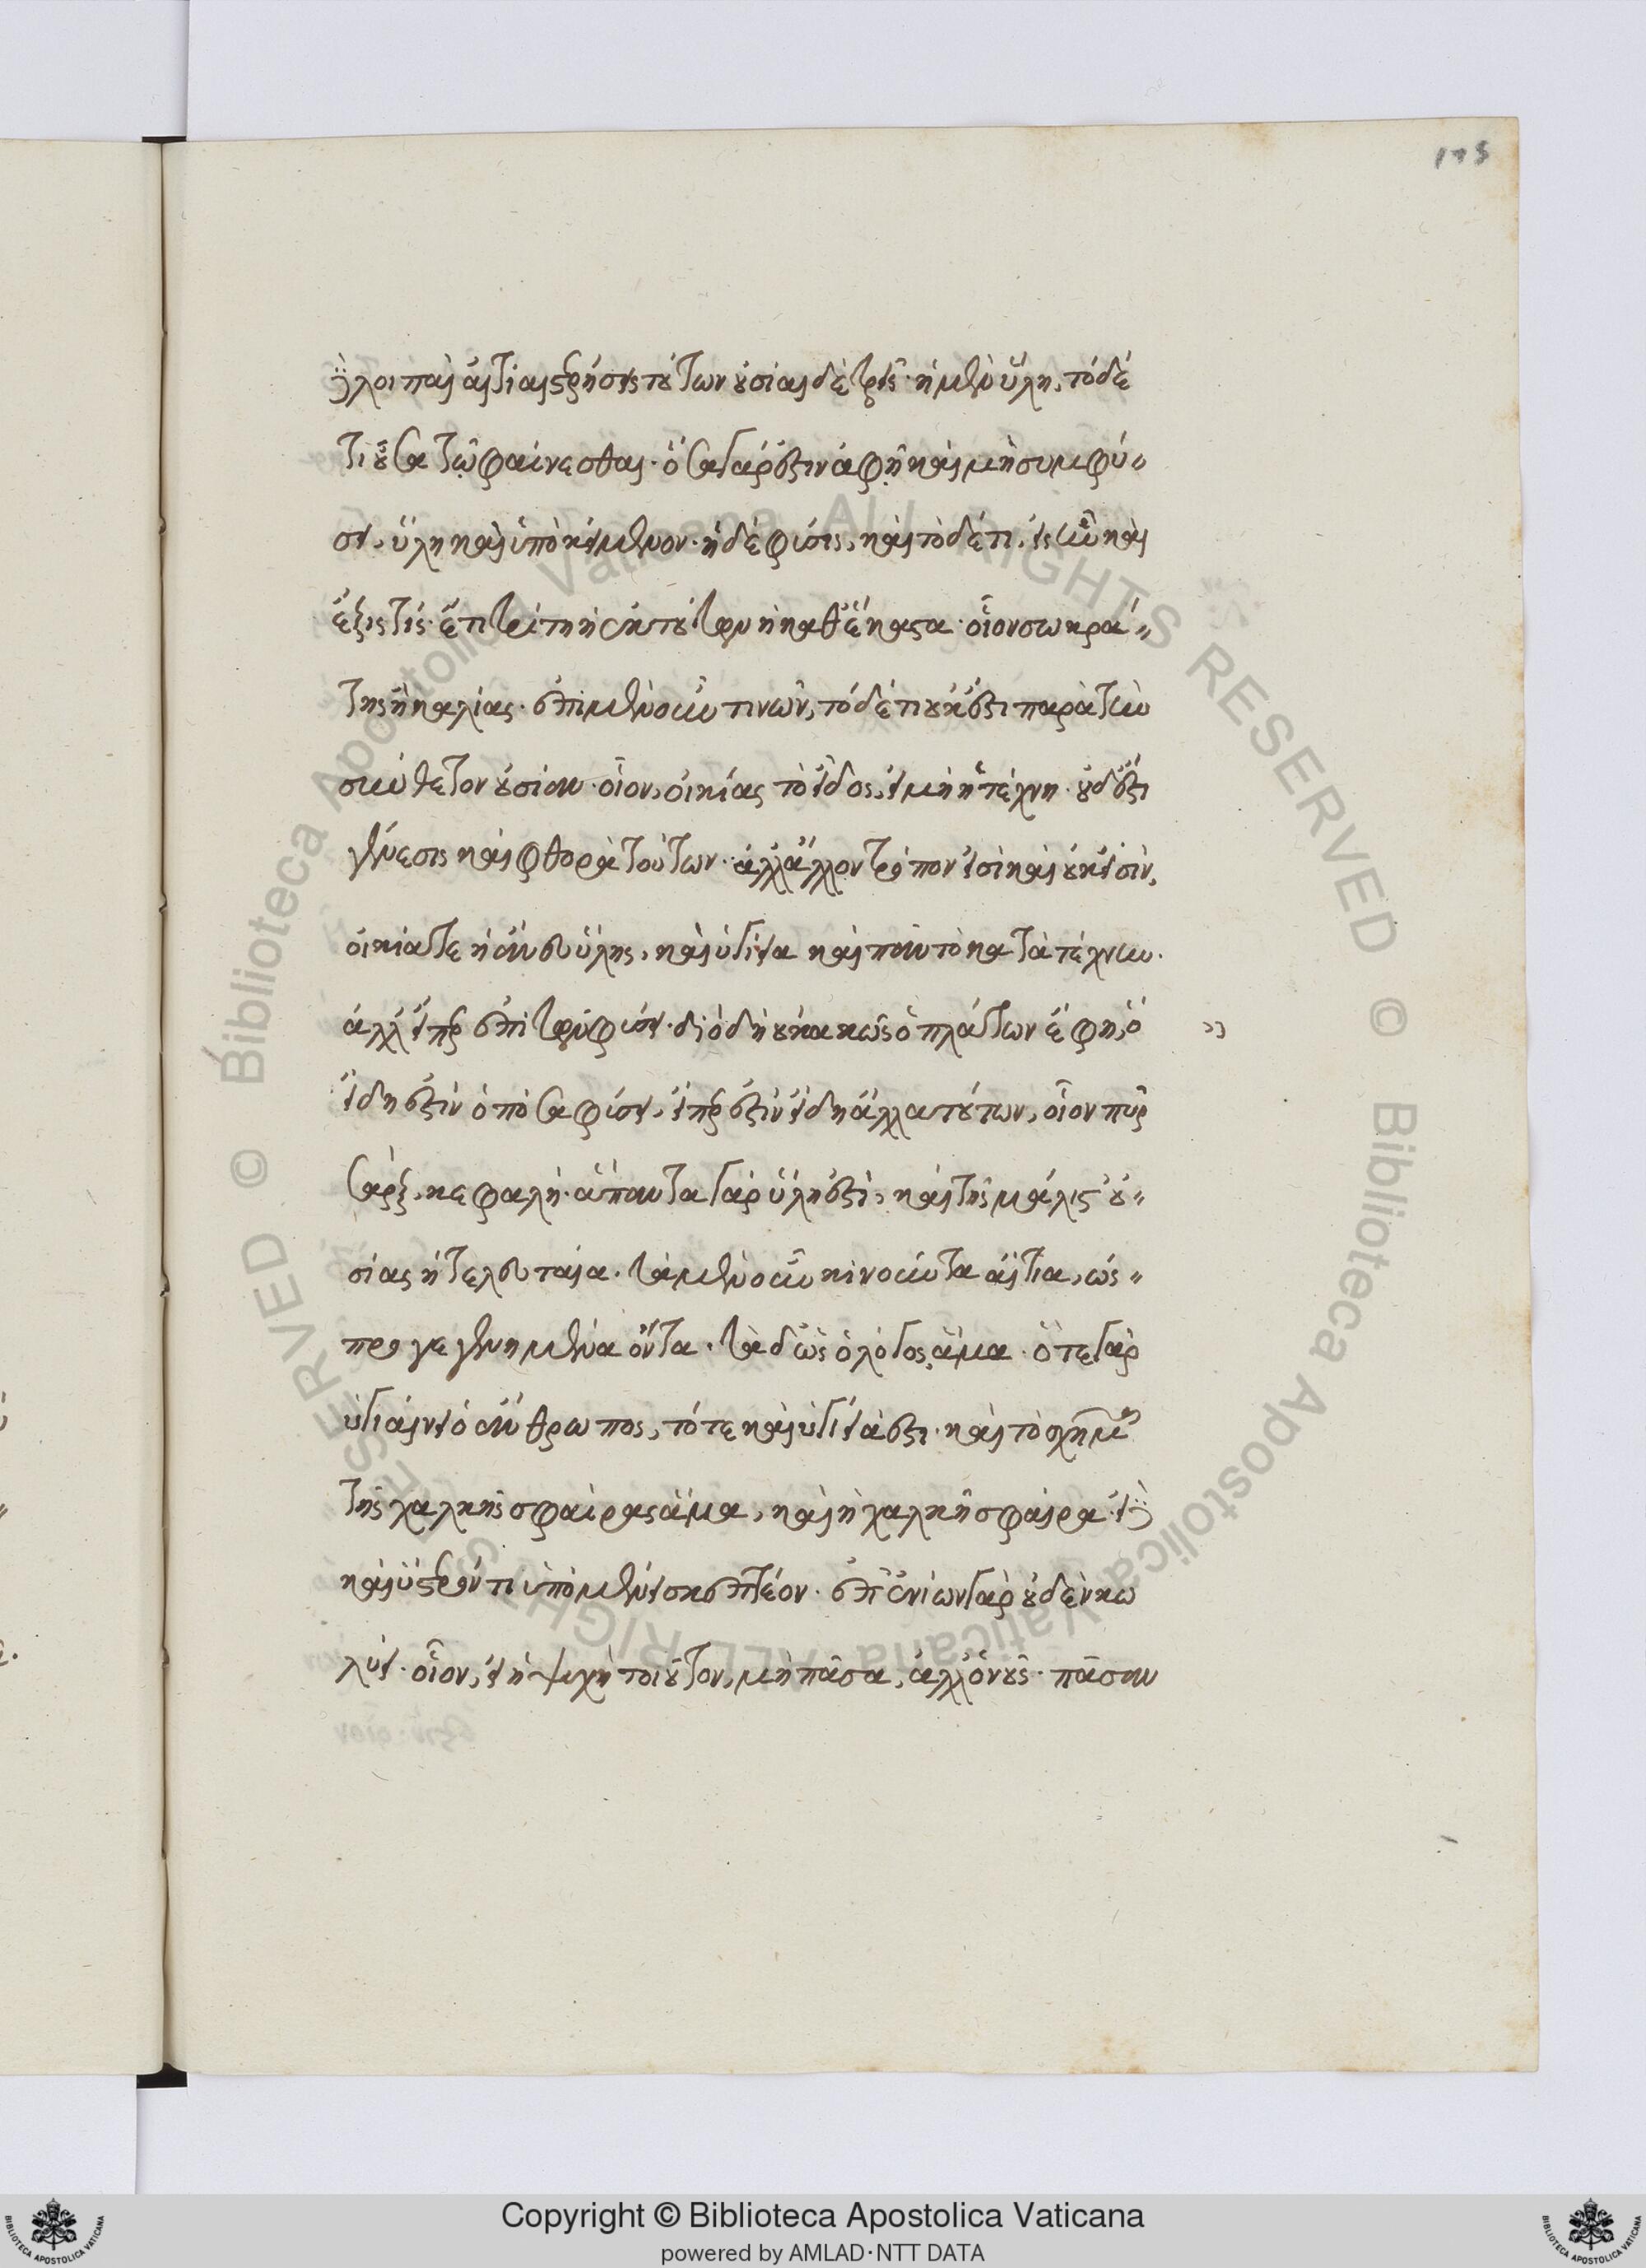 115
λοιπαὶ αἰτίαι στερήσεις τούτων οὐσίαι δὲ τρεῖς· ἡ μὲν ὕλη, τόδε
τι οὖσα τῷ φαίνεσθαι· ὅσα γάρ ἐστιν ἁφῇ καὶ μὴ συμφύ„
σει, ὕλη καὶ ὑποκείμενον· ἡ δὲ φύσις, καὶ τόδε τι, εἰς ἣν καὶ
ἕξις τίς· ἔτι τρίτη ἡ ἐκ τούτων ἡ καθ' ἕκαστα· οἷον σωκρά„
της ἢ καλίας· ἐπὶ μὲν οὖν τινῶν, τόδε τι οὐκ ἔστι παρὰ τὴν
συνθετον οὐσίαν· οἷον, οἰκίας τὸ εἶδος, εἰ μὴ ἡ τέχνη· οὐδ' ἔστι
γένεσις καὶ φθορὰ τούτων· ἀλλ' ἄλλον τρόπον εἰσὶ καὶ οὐκ εἰσὶν,
οἰκία τε ἡ ἄνευ ὕλης, καὶ ὑγίεια καὶ πᾶν τὸ κατὰ τέχνην·
ἀλλ' εἴπερ ἐπὶ τῶν φύσει· διὸ δὴ οὐ κακῶς ὁ πλάτων ἔφη, ὅ
εἴδη ἐστὶν ὁπόσα φύσει, εἴπερ ἐστὶν εἴδη ἄλλα τούτων, οἷον πῦρ
σὰρξ, κεφαλή· ἅπαντα γὰρ ὕλη ἐστὶ, καὶ τῆς μάλιστ' οὐ„
σίας ἡ τελευταία· τὰ μὲν οὖν κινοῦντα αἴτια, ὡς„
προγεγενημένα ὄντα· τὰ δ' ὡς ὁ λόγος, ἅμα· ὅτε γὰρ
ὑγιαίνει ὁ ἄνθρωπος, τότε καὶ ὑγίεια ἐστι· καὶ τὸ σχῆμα
τῆς χαλκῆς σφαίρας ἅμα, καὶ ἡ χαλκῆ σφαίρα· εἰ
καὶ ὕστερόν τι ὑπομένει σκεπτέον· ἐπ' ἐνίων γὰρ οὐδὲν κω
λύει· οἷον, εἰ ἡ ψυχὴ τοιοῦτον, μὴ πᾶσα, ἀλλ' ὁ νοῦς· πᾶσαν
Copyright © Biblioteca Apostolica Vaticana
powered by AMLAD·NTT DATA